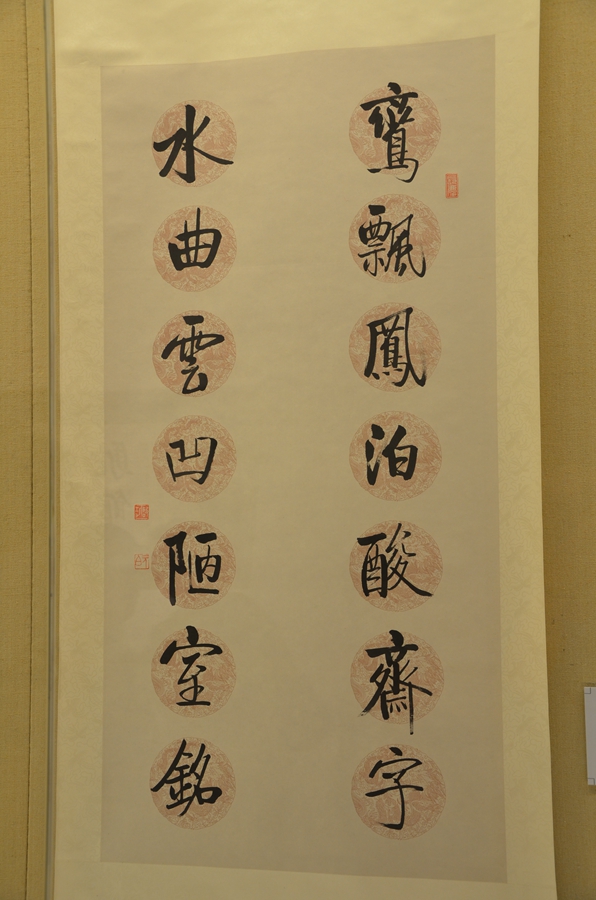 鸞飄鳳泊酸齋字
水曲雲凹陋室銘